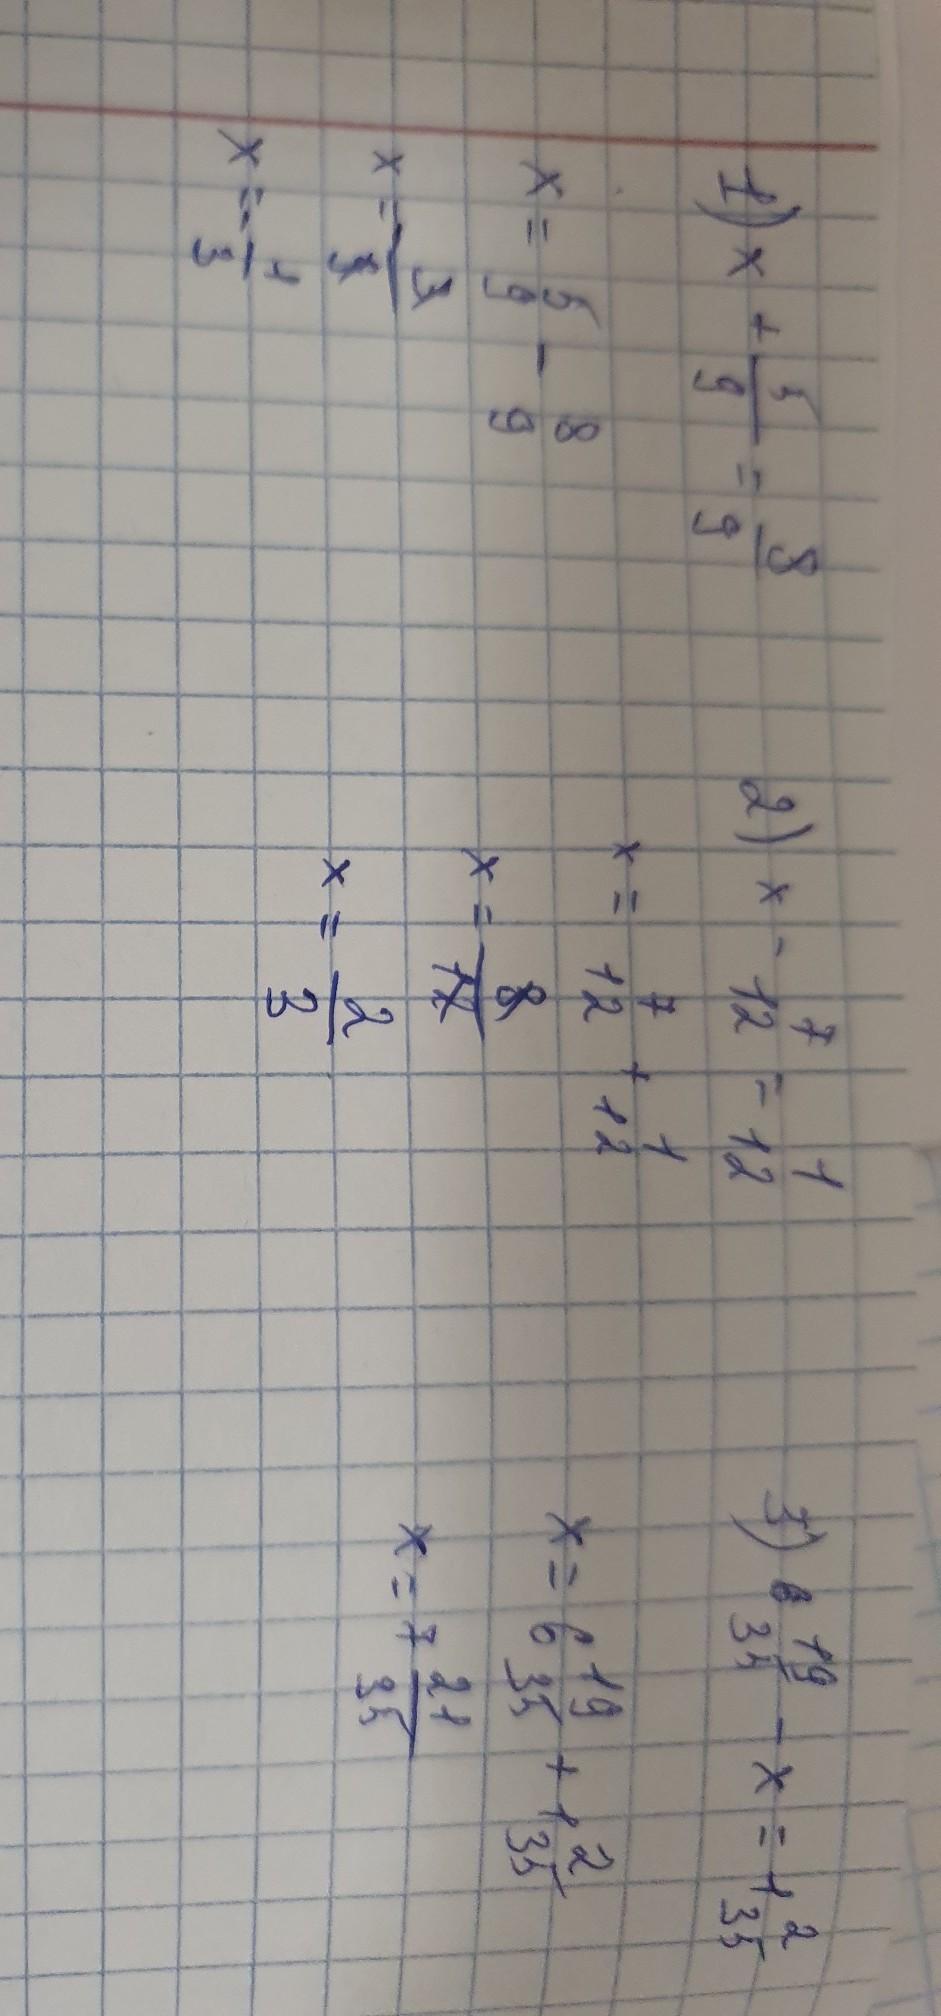 1) x + 5/9 = 8/9
x = 5/9 - 8/9
x = 3/9
x = 1/3
2) x - 7/12 = 1/12
x = 7/12 + 1/12
x = 8/12
x = 2/3
3) 6 19/35 - x = 1 2/35
x = 6 19/35 + 1 2/35
x = 7 21/35